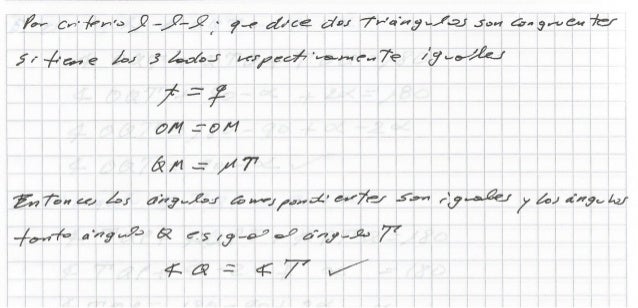 Por criterio l-l-l; que dice dos triángulos son congruentes
si tiene los 3 lados respectivamente iguales
r = q
OM = OM
QM = MT
Entonces los ángulos correspondientes son iguales y los ángulos
tanto ángulo Q es igual al ángulo T
∢ Q = ∢ T ✓